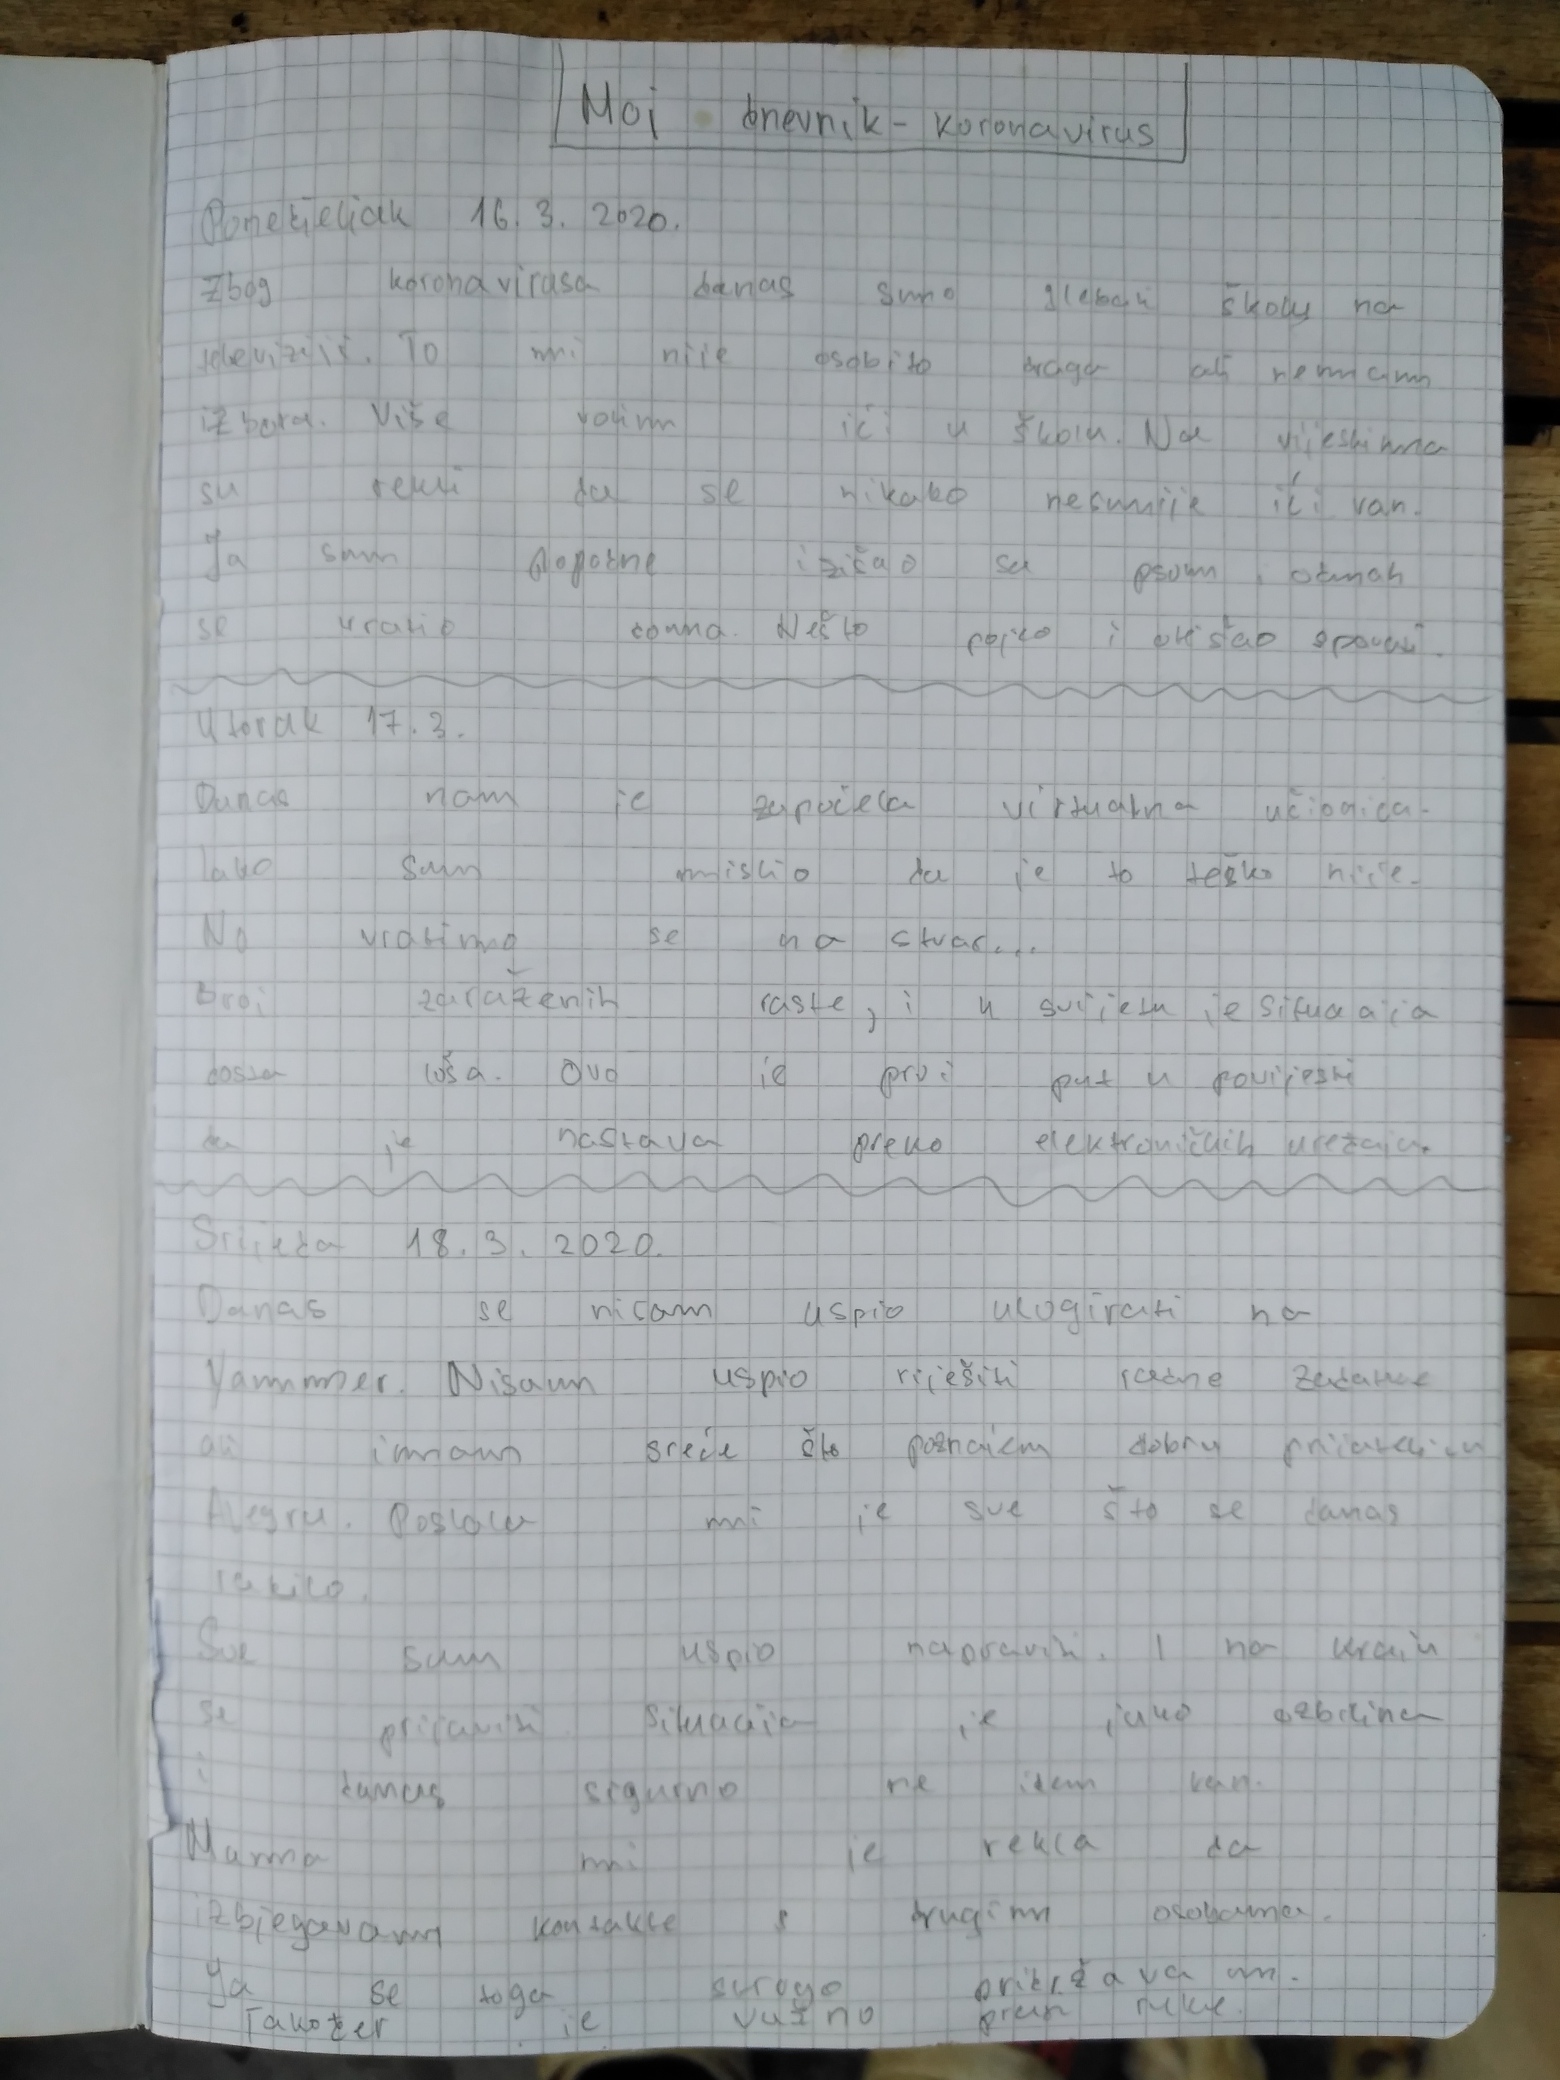 Moj dnevnik - koronavirus
Ponedjeljak 16. 3. 2020.
Zbog koronavirusa danas smo gledali školu na
televiziji. To mi nije osobito drago ali nemam
izbora. Više volim ići u školu. Na vijestima
su rekli da se nikako nesmije ići van.
Ja sam popodne izišao sa psom i odmah
se vratio doma. Nešto pojeo i otišao spavati.
Utorak 17. 3.
Danas nam je započela virtualna učionica.
Iako sam mislio da je to teško nije.
No vratimo se na stvar...
Broj zaraženih raste, i u svijetu je situacija
dosta loša. Ovo je prvi put u povijesti
da je nastava preko elektroničkih uređaja.
Srijeda 18. 3. 2020.
Danas se nisam uspio ulogirati na
Yammmer. Nisam uspio riješiti zadatke
ali imam sreće što poznajem dobru prijateljicu
Alegru. Poslala mi je sve što se danas
radilo.
Sve sam uspio napraviti. I na kraju
se prijaviti. Situacija je jako ozbiljna
i danas sigurno ne idem van.
Mama mi je rekla da
izbjegavam kontakte s drugim osobama.
Ja se toga strogo pridržavam.
Također je važno prati ruke.